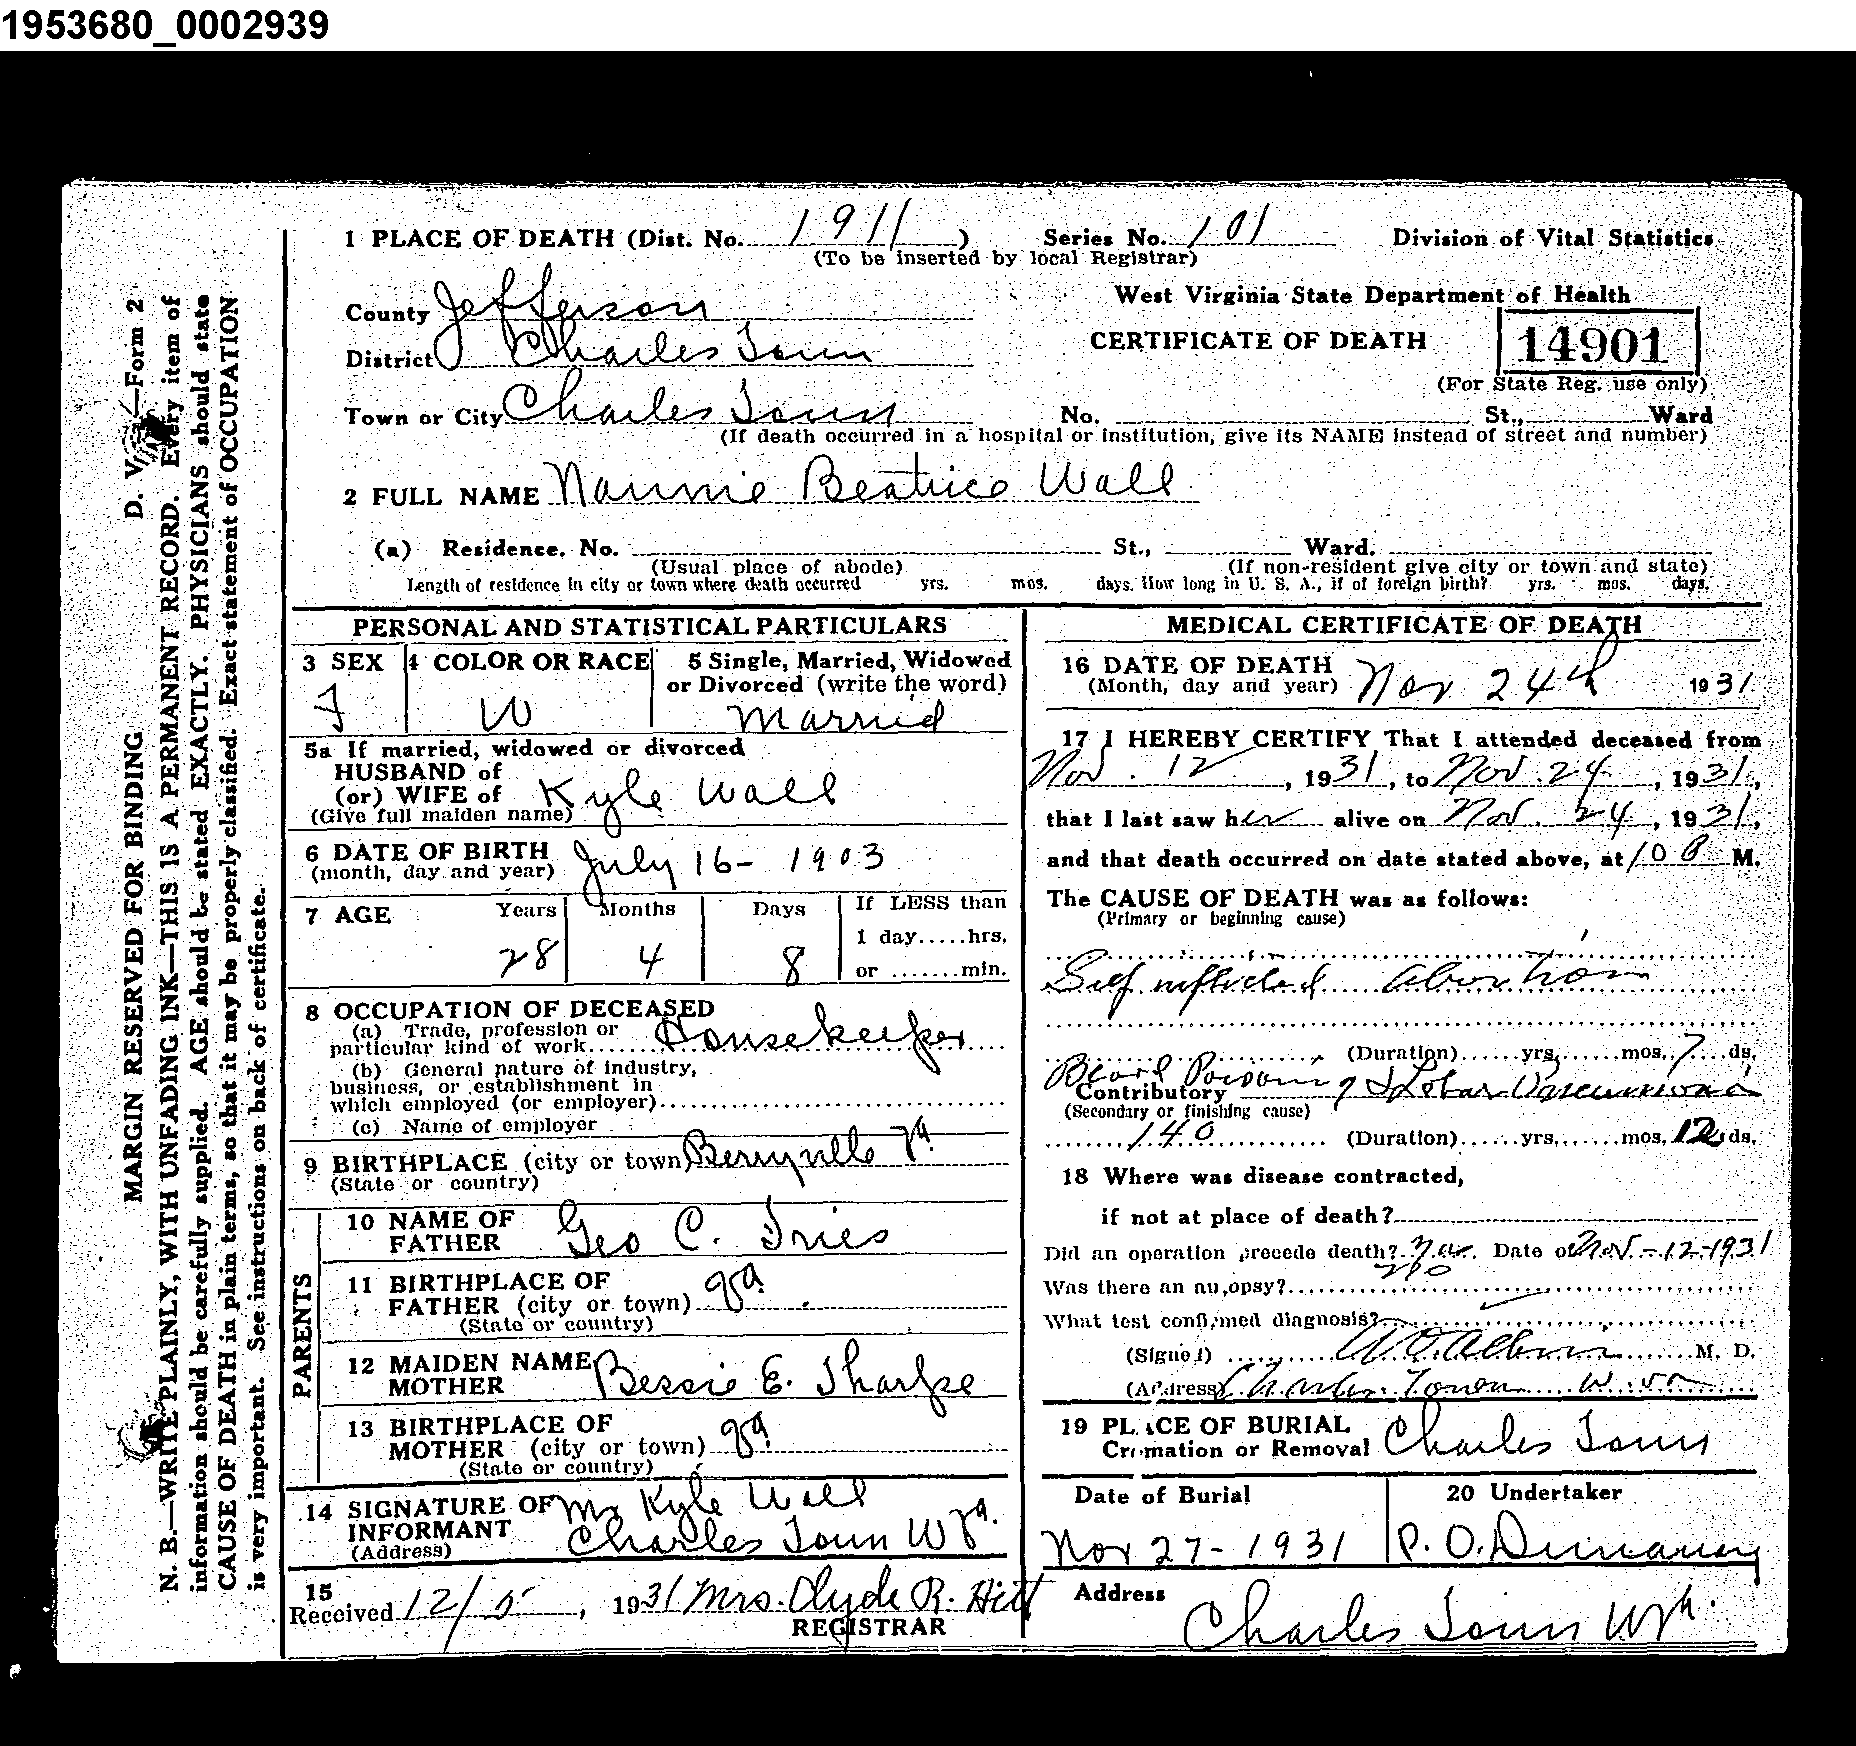 1953680_0002939
1 PLACE OF DEATH (Dist. No. 1911 ) Series No. 101 Division of Vital Statistics
(To be inserted by local Registrar)
County Jefferson West Virginia State Department of Health
District Charles Town CERTIFICATE OF DEATH 14901
(For State Reg. use only)
Town or City Charles Town No. St., Ward
(If death occurred in a hospital or institution, give its NAME instead of street and number)
2 FULL NAME Nannie Beatrice Wall
(a) Residence. No. St., Ward.
(Usual place of abode) (If non-resident give city or town and state)
Length of residence in city or town where death occurred yrs. mos. days. How long in U. S. A., if of foreign birth? yrs. mos. days.
PERSONAL AND STATISTICAL PARTICULARS
3 SEX 4 COLOR OR RACE 5 Single, Married, Widowed
or Divorced (write the word)
F W Married
5a If married, widowed or divorced
HUSBAND of
(or) WIFE of Kyle Wall
(Give full maiden name)
6 DATE OF BIRTH July 16- 1903
(month, day and year)
7 AGE Years Months Days If LESS than
1 day.....hrs.
28 4 8 or .......min.
8 OCCUPATION OF DECEASED
(a) Trade, profession or
particular kind of work Housekeeper
(b) General nature of industry,
business, or establishment in
which employed (or employer)
(c) Name of employer
9 BIRTHPLACE (city or town) Berryville Va
(State or country)
PARENTS
10 NAME OF
FATHER Geo C. Fries
11 BIRTHPLACE OF
FATHER (city or town) Va
(State or country)
12 MAIDEN NAME
MOTHER Bessie E. Tharpe
13 BIRTHPLACE OF
MOTHER (city or town) Va
(State or country)
14 SIGNATURE OF Mr Kyle Wall
INFORMANT
(Address) Charles Town W Va.
15
Received 12/5, 1931 Mrs. Clyde R. Hill
REGISTRAR
MEDICAL CERTIFICATE OF DEATH
16 DATE OF DEATH Nov 24th 1931
(Month, day and year)
17 I HEREBY CERTIFY That I attended deceased from
Nov. 12, 1931, to Nov. 24, 1931,
that I last saw her alive on Nov. 24, 1931,
and that death occurred on date stated above, at 10 P M.
The CAUSE OF DEATH was as follows:
(Primary or beginning cause)
Self inflicted abortion
(Duration)......yrs.......mos. 7 ds.
Blood Poisoning & Lobar Pneumonia
Contributory
(Secondary or finishing cause)
140 (Duration)......yrs.......mos. 12 ds.
18 Where was disease contracted,
if not at place of death?
Did an operation precede death? Yes. Date of Nov.-12-1931
Was there an autopsy? no
What test confirmed diagnosis?
(Signed) M. D.
(Address) Charles Town W. Va
19 PLACE OF BURIAL
Cremation or Removal Charles Town
Date of Burial 20 Undertaker
Nov 27-1931 P. O.
Address
Charles Town W Va.
MARGIN RESERVED FOR BINDING D. V.—Form 2
N. B.—WRITE PLAINLY, WITH UNFADING INK—THIS IS A PERMANENT RECORD. Every item of
information should be carefully supplied. AGE should be stated EXACTLY. PHYSICIANS should state
CAUSE OF DEATH in plain terms, so that it may be properly classified. Exact statement of OCCUPATION
is very important. See instructions on back of certificate.